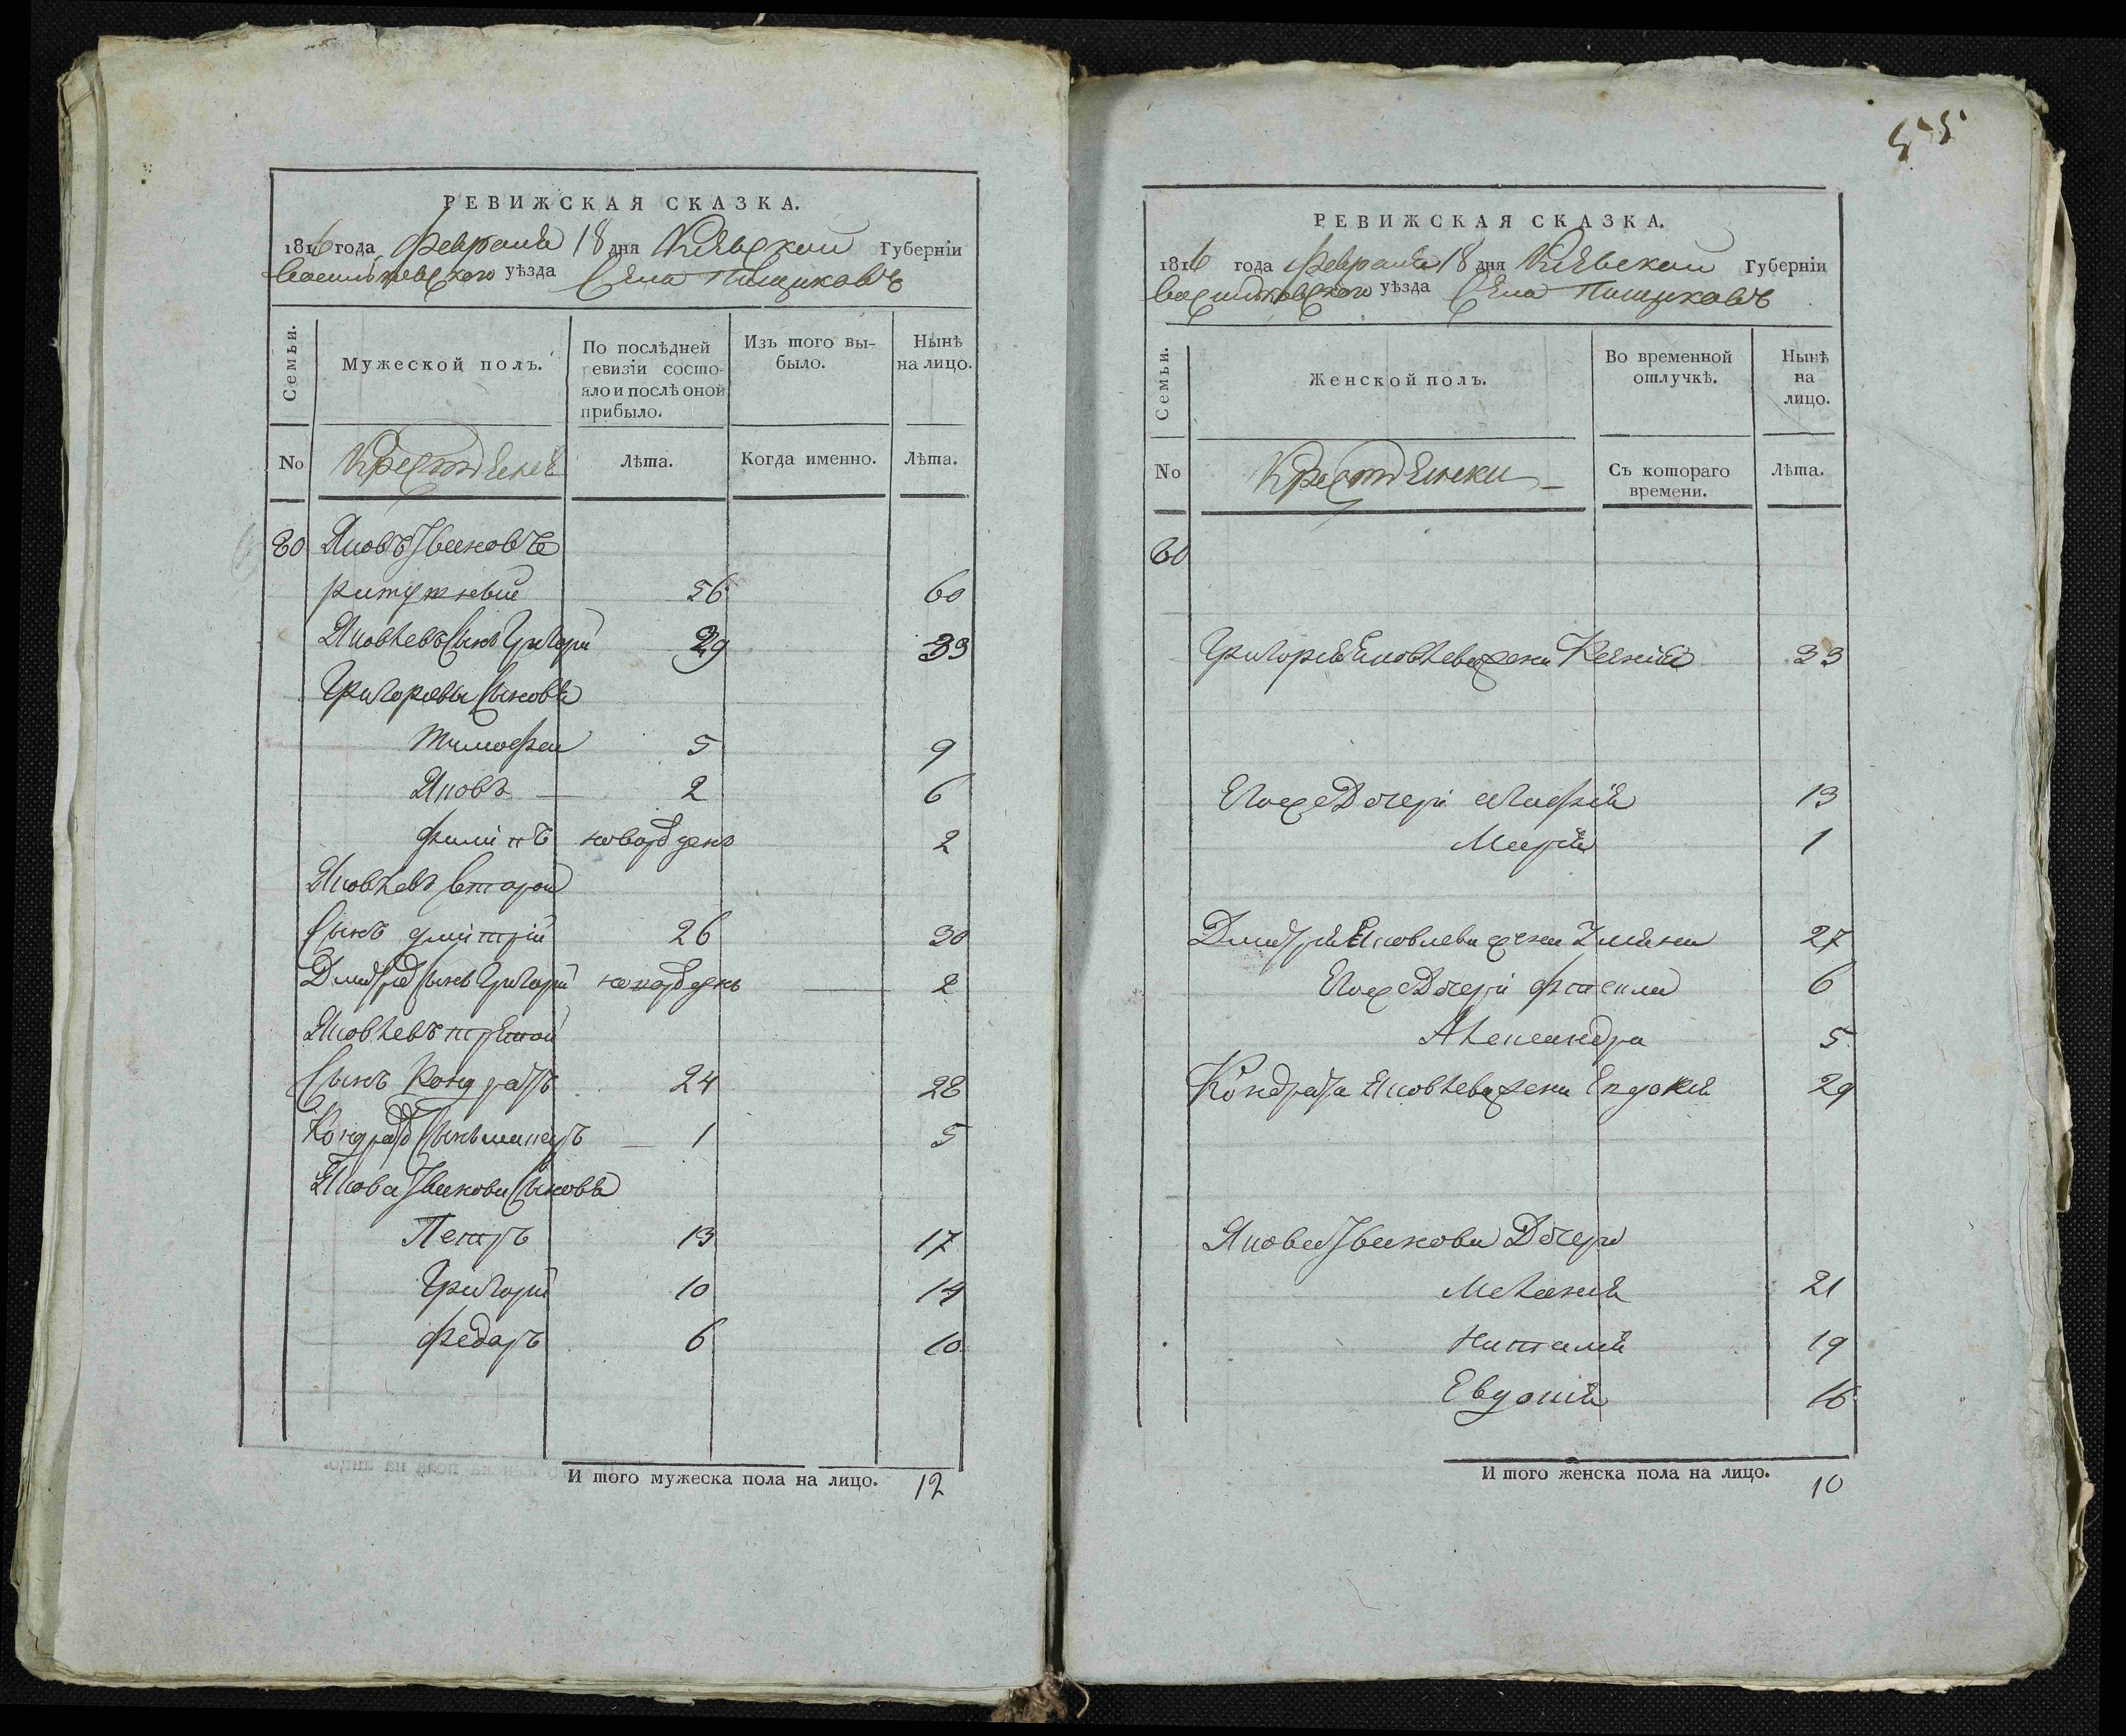 РЕВИЖСКАЯ СКАЗКА.
1816 года Февраля 18 дня Киевской Губерніи
Васильковского уѣзда Села Пищиковъ
Семьи.
Мужеской полъ.
По послѣдней ревизіи состояло и послѣ оной прибыло.
Изъ того выбыло.
Нынѣ на лицо.
No
Крестьяне
Лѣта.
Когда именно.
Лѣта.
60 Яковъ Ивановъ
56 60
Яковлевъ Сынъ Григорій 29 33
Григорьевы Сыновья
Тимофей 5 9
Яковъ 2 6
Филіпъ новорожденъ 2
Яковлевъ второй
Сынъ Дмітрій 26 30
Дмитрія Сынъ Григорій новорожденъ 2
Яковлевъ третой
Сынъ Кондратъ 24 28
Кондрата Сынъ 1 5
Якова Иванова Сыновья
Петръ 13 17
Григорій 10 14
Федоръ 6 10
И того мужеска пола на лицо. 12
55
РЕВИЖСКАЯ СКАЗКА.
1816 года Февраля 18 дня Киевской Губерніи
Васильковского уѣзда Села Пищиковъ
Семьи.
Женской полъ.
Во временной отлучкѣ.
Нынѣ на лицо.
No
Крестьянки
Съ котораго времени.
Лѣта.
60
Григорія Яковлева жена Ксенія 33
Егожъ Дочери Агафія 13
Марія 1
Дмитрія Яковлева жена 27
Егожъ Дочери Фтекла 6
Александра 5
Кондрата Яковлева жена Евдокія 29
Якова Иванова Дочери
Меланія 21
Наталія 19
Евдокія 16
И того женска пола на лицо. 10